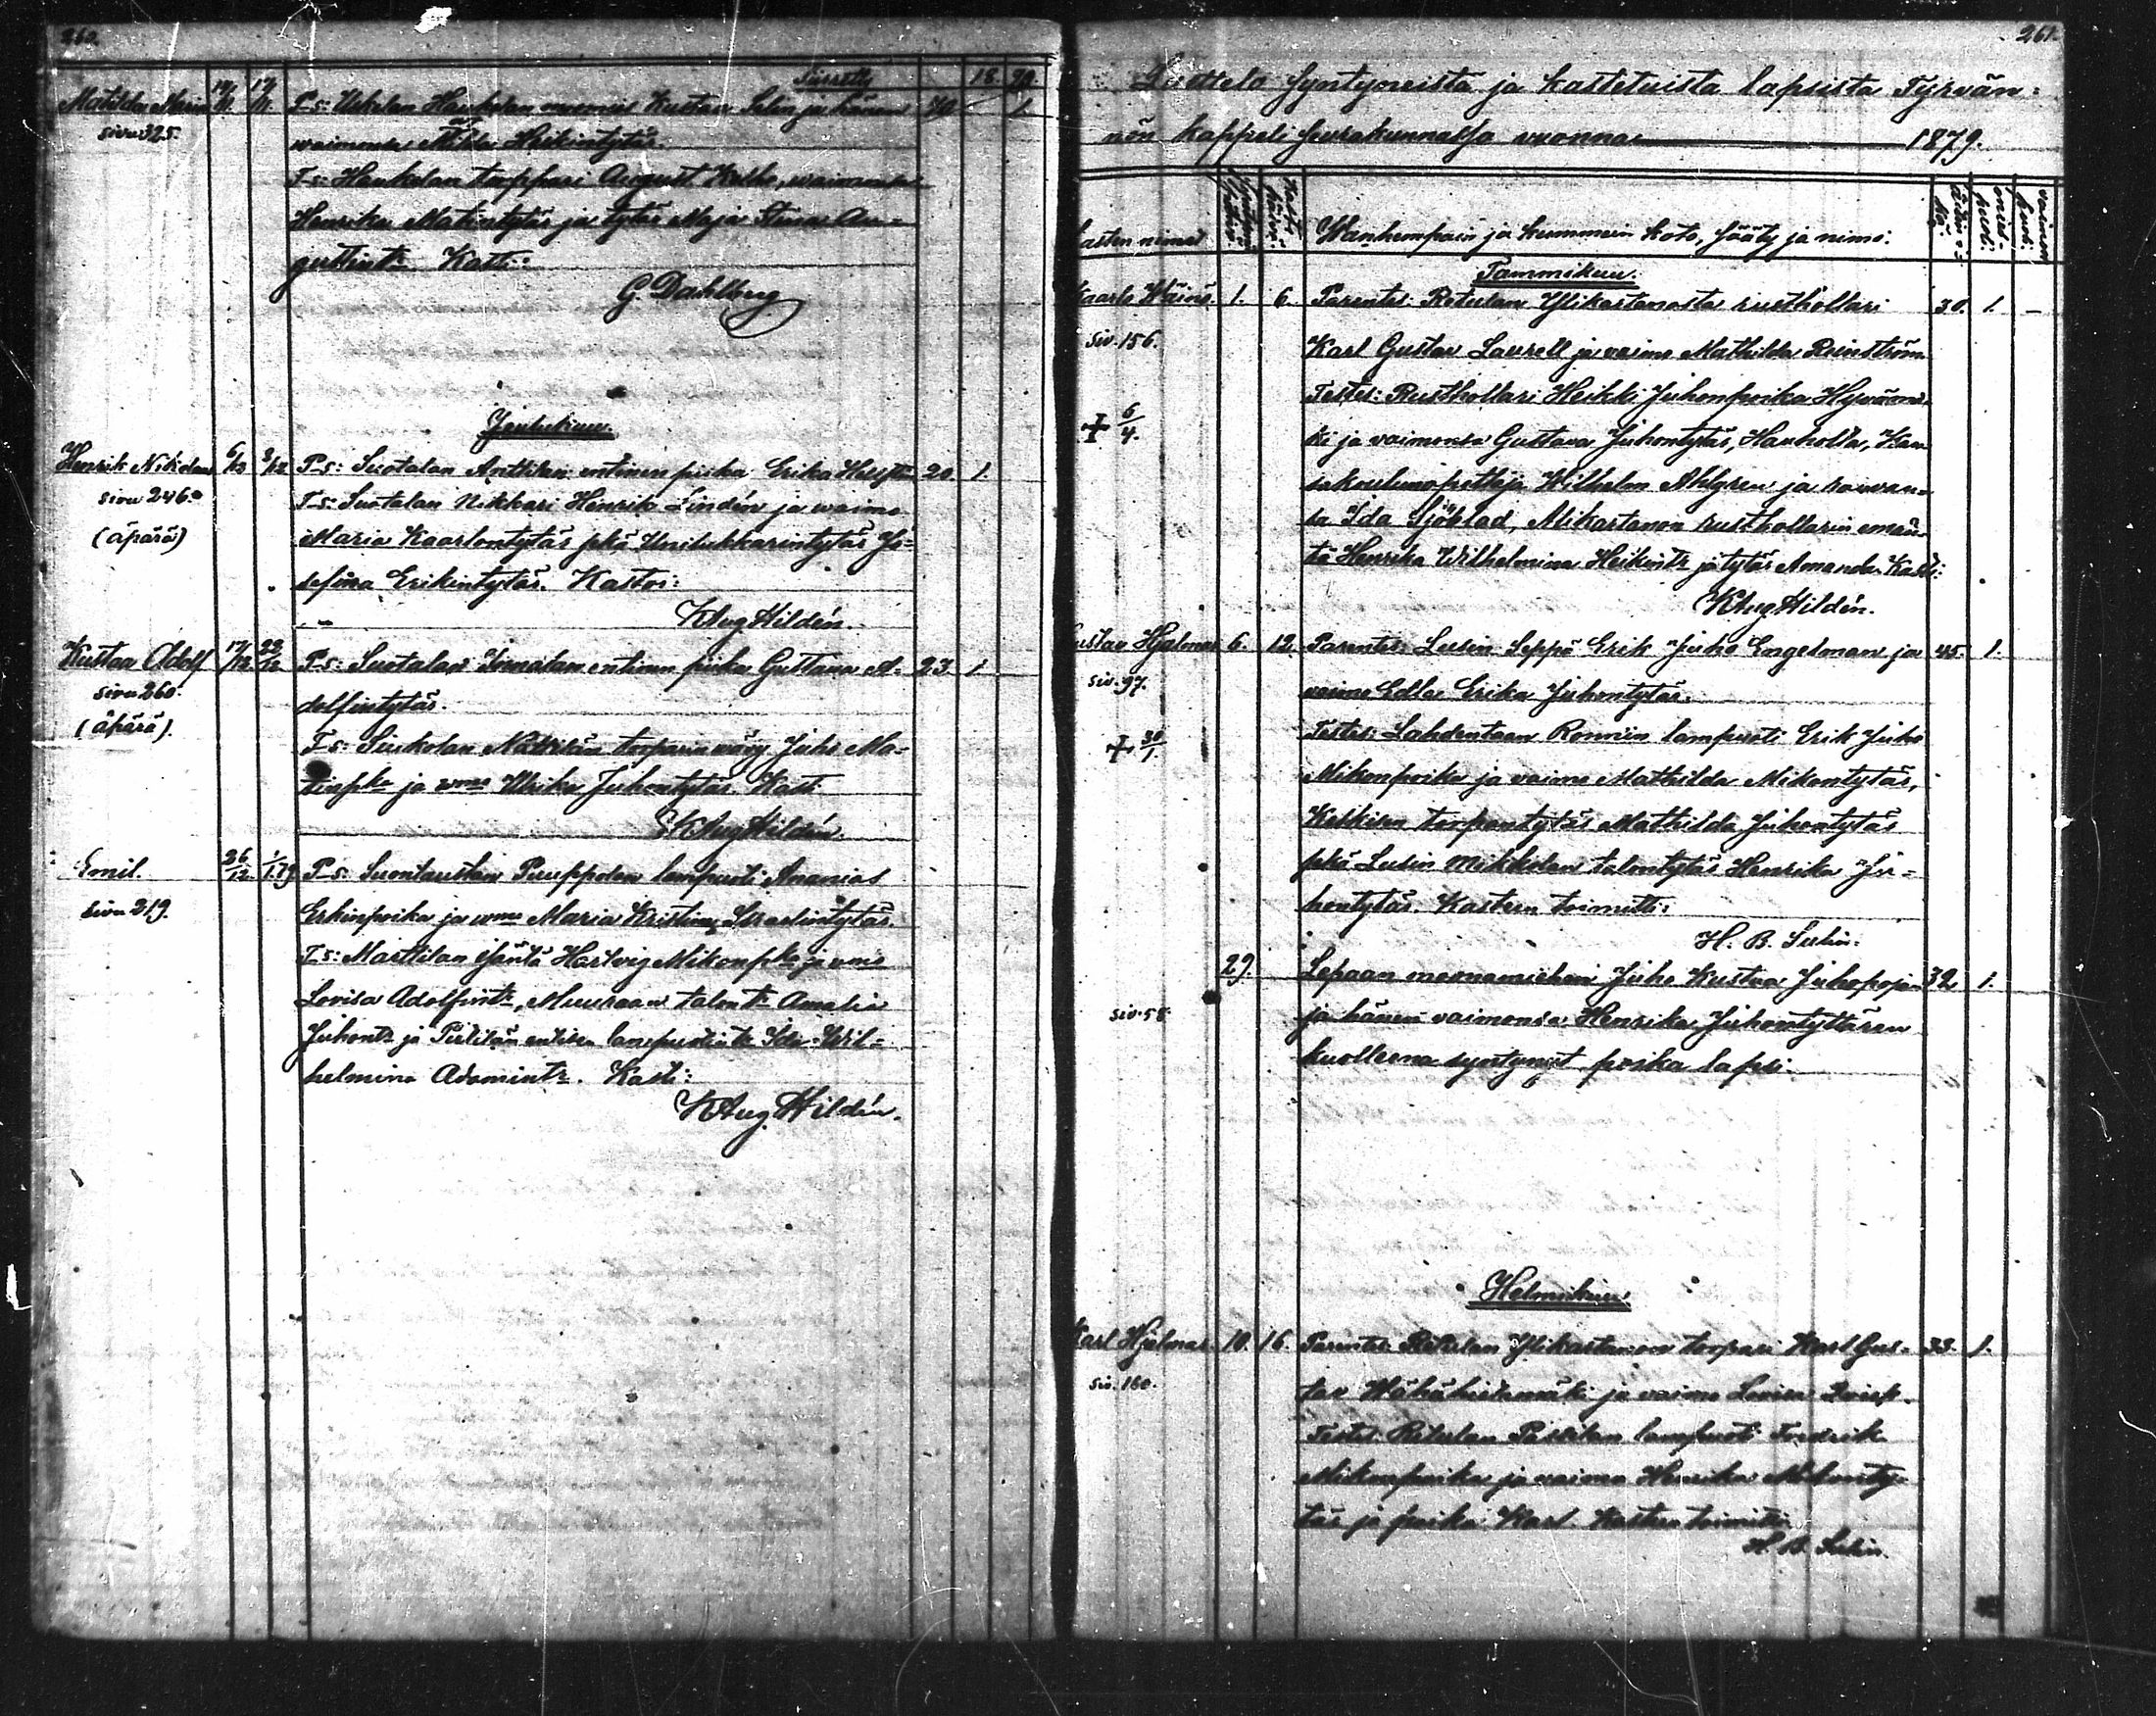 260.
Siirretty 18. 20.
Matilda Maria 14/11. 17/11. P-s: Uskelan Haukolan muonamies Kustaa Selin ja hänen 40 1.
sivu 325. waimonsa Milda Heikintytär.
T-s: Haukolan torppari August, waimonsa
Henrika Matintytär ja tytär Maja Stina Au-
gustint:r Kasti:
G. Dahlberg
Joulukuu.
Henrik Nikolai 6/12 8/12 P-s: Suotalan Anttilan entinen piika Erika 20. 1.
sivu 246. T-s: Suotalan Nikkari Henrik Lindén ja waimo
(äpärä) Maria Kaarlontytär sekä Unilukkarintytär Jo-
sefina Erikintytär. Kastoi:
K Aug Hildén.
Kustaa Adolf 17/12 22/12 P-s: Suotalan entinen piika Gustava A- 23. 1.
sivu 260. dolfintytär.
(äpärä). T-s: torparin wäwy Juho Ma-
tinp:ka ja w:mo Ulrika Juhontytär. Kast:
K Aug Hildén.
Emil. 26/12 1/1.79 P-s. Suontaustan Puuppolan lampuoti Ananias
sivu 319. Erkinpoika ja w:mo Maria Kristina Israelintytär.
T-s: Marttilan isäntä Hartvig Mikonp:ka ja w:mo
Lovisa Adolfint:r, Muuraan talont:r Amalia
Juhont:r ja entisen lampuotint:r Ida Wil-
helmina Adamint:r. Kasti:
K Aug. Hildén.
261.
Luettelo syntyneistä ja kastetuista lapsista Tyrvän-
nön kappeli seurakunnassa vuonna 1879.
Lasten nimet Wanhempain ja kummein koto, sääty ja nimi.
Tammikuu.
Kaarlo Wäinö. 1. 6. Parentes: Retulan Ylikartanosta rusthollari 30. 1. –
siv. 156. Karl Gustav Laurell ja vaimo Mathilda Reinström
Testes: Rusthollari Heikki Juhonpoika Hyvämä-
+ 6/4. ki ja vaimonsa Gustava Juhontytär, Kan-
sakoulunopettaja Wilhelm Ahlgren ja rouvan-
sa Ida Sjöblad, Alikartanon rusthollarin emän-
tä Henrika Wilhelmina Heikint:r ja tytär Amanda. Kasti:
K Aug. Hildén.
Gustav Hjalmar 6. 12. Parentes: Lusin Seppä Erik Juho Engelman ja 45. 1.
siv. 97. vaimo Edla Erika Juhontytär.
+ 30/1. Testes: Lahdentaan lampuoti Erik Juho
Mikonpoika ja vaimo Mathilda Mikontytär,
torpantytär Mathilda Juhontytär
sekä Lusin Mikkolan talontytär Henrika Ju-
hontytär. Kasteen toimitti:
H. B. Sulin.
29. Lepaan muonamiehen Juho Kustaa Juhopojan 32 1.
siv. 58 ja hänen vaimonsa Henrika Juhontyttären
kuolleena syntynyt poika lapsi.
Helmikuu.
Karl Hjalmar. 10. 16. Parentes: Retulan Ylikartanon torpari Karl Gus- 33. 1.
siv. 160. tav ja vaimo Lovisa
Testes: Retulan Passilan lampuoti Fredrik
Mikonpoika ja vaimo Henrika
tär ja poika Karl. Kasteen toimitti
H. B. Sulin.